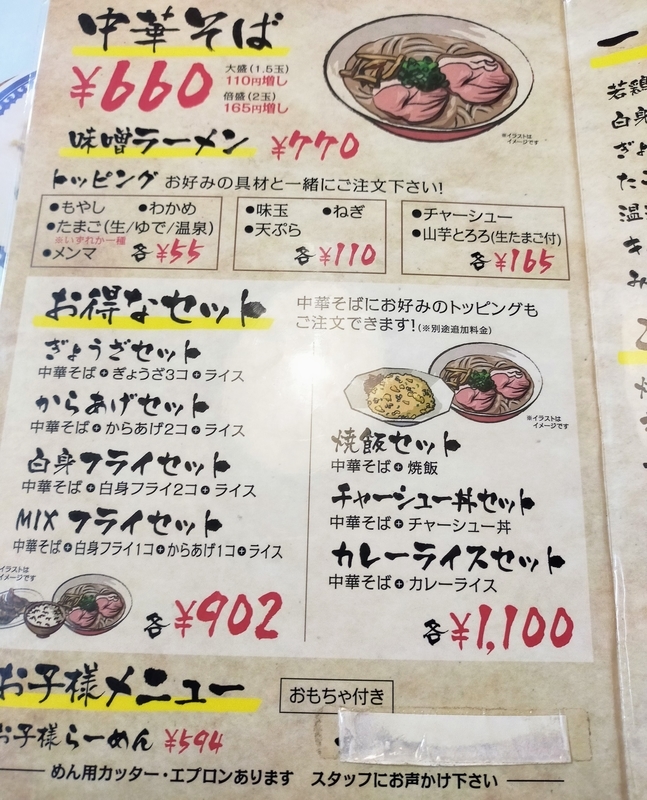 中華そば
¥660
大盛(1.5玉)
110円増し
倍盛(2玉)
165円増し
※イラストは
イメージです
味噌ラーメン ¥770
トッピング お好みの具材と一緒にご注文下さい!
●もやし ●わかめ
●たまご(生/ゆで/温泉)
※いずれか一種
●メンマ 各¥55
●味玉 ●ねぎ
●天ぷら
各¥110
●チャーシュー
●山芋とろろ(生たまご付)
各¥165
お得なセット
中華そばにお好みのトッピングも
ご注文できます!(※別途追加料金)
ぎょうざセット
中華そば+ぎょうざ3コ+ライス
からあげセット
中華そば+からあげ2コ+ライス
白身フライセット
中華そば+白身フライ2コ+ライス
MIXフライセット
中華そば+白身フライ1コ+からあげ1コ+ライス
イラストは
イメージです
各¥902
※イラストは
イメージです
焼飯セット
中華そば+焼飯
チャーシュー丼セット
中華そば+チャーシュー丼
カレーライスセット
中華そば+カレーライス
各¥1,100
お子様メニュー
おもちゃ付き
お子様らーめん ¥594
めん用カッター・エプロンあります スタッフにお声かけ下さい
一
若鶏
白身
ぎょ
たこ
温
キ
み